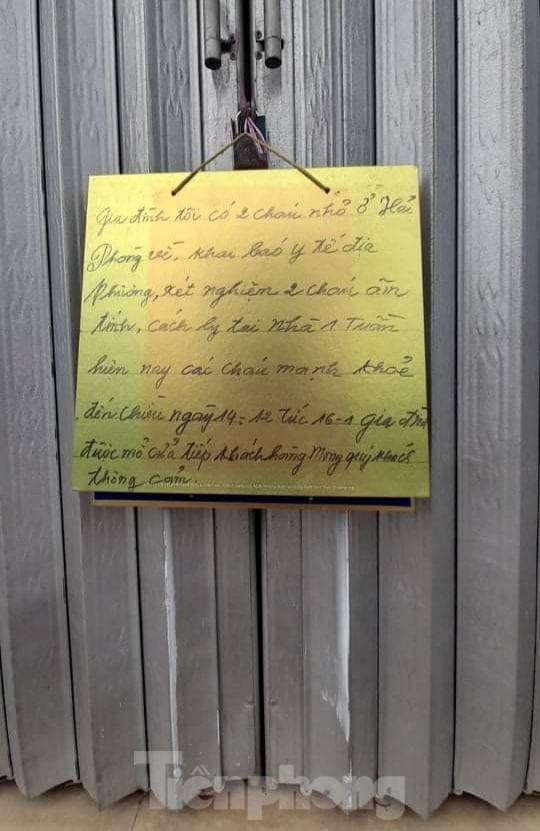 Gia đình tôi có 2 cháu nhỏ ở Hải
Phòng về, khai báo y tế địa
phương, xét nghiệm 2 cháu âm
tính, cách ly tại nhà 1 Tuần
hiện nay các cháu mạnh khoẻ
đến chiều ngày 14-12 tức 16-1 gia đình
được mở cửa tiếp khách hàng Mong quý khách
thông cảm.
Tiênphong